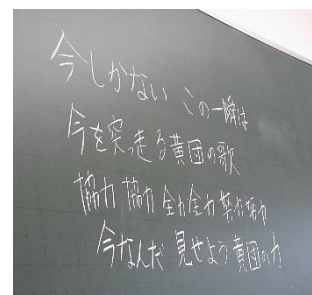 今しかない この一瞬は
今を突っ走る黄団の歌
協力 協力 全力全力 努力努力
今なんだ 見せよう黄団の力